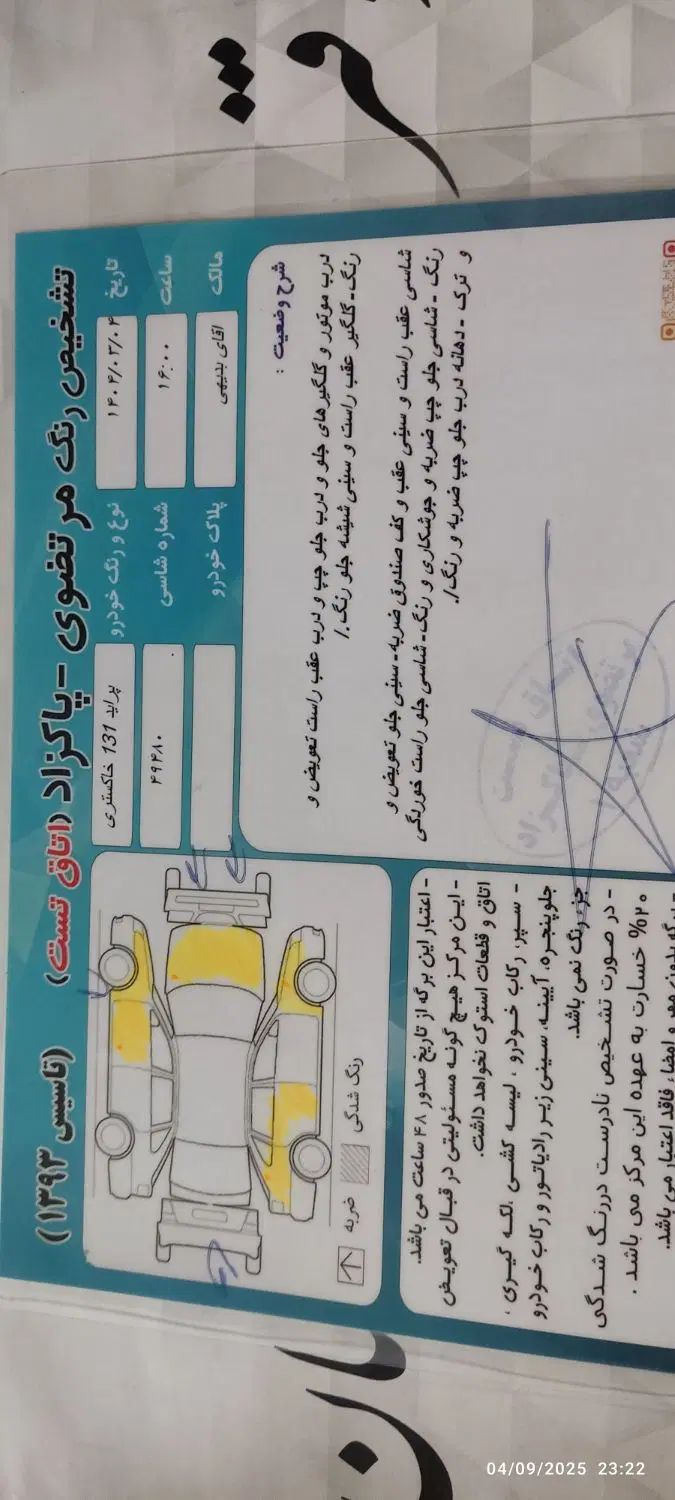 تشخیص رنگ مرتضوی - پاکزاد (اتاق تست) (تاسیس ۱۳۹۳)
تاریخ ۱۴۰۴/۰۳/۰۴ نوع و رنگ خودرو پراید 131 خاکستری
ساعت ۱۶:۰۰ شماره شاسی ۴۹۴۸۰
مالک اقای بدیهی پلاک خودرو
شرح وضعیت :
درب موتور و گلگیر های جلو و درب جلو چپ و درب عقب راست تعویض و
رنگ - گلگیر عقب راست و سینی شیشه جلو رنگ ./
شاسی عقب راست و سینی عقب و کف صندوق ضربه - سینی جلو تعویض و
رنگ - شاسی جلو چپ ضربه و جوشکاری و رنگ - شاسی جلو راست خوردگی
و ترک - دهانه درب جلو چپ ضربه و رنگ ./
ضربه رنگ شدگی
- اعتبار این برگه از تاریخ صدور ۴۸ ساعت می باشد.
- این مرکز هیچ گونه مسئولیتی در قبال تعویض
اتاق و قطعات استوک نخواهد داشت.
- سپر، رکاب خودرو ، لیسه کشی ،لکه گیری ،
جلوپنجره، آیینه، سینی زیر رادیاتور و رکاب خودرو
جزء رنگ نمی باشد.
- در صورت تشخیص نادرست دررنگ شدگی
۲۰% خسارت به عهده این مرکز می باشد .
- برگه بدون مهر و امضاء، فاقد اعتبار می باشد.
04/09/2025 23:22